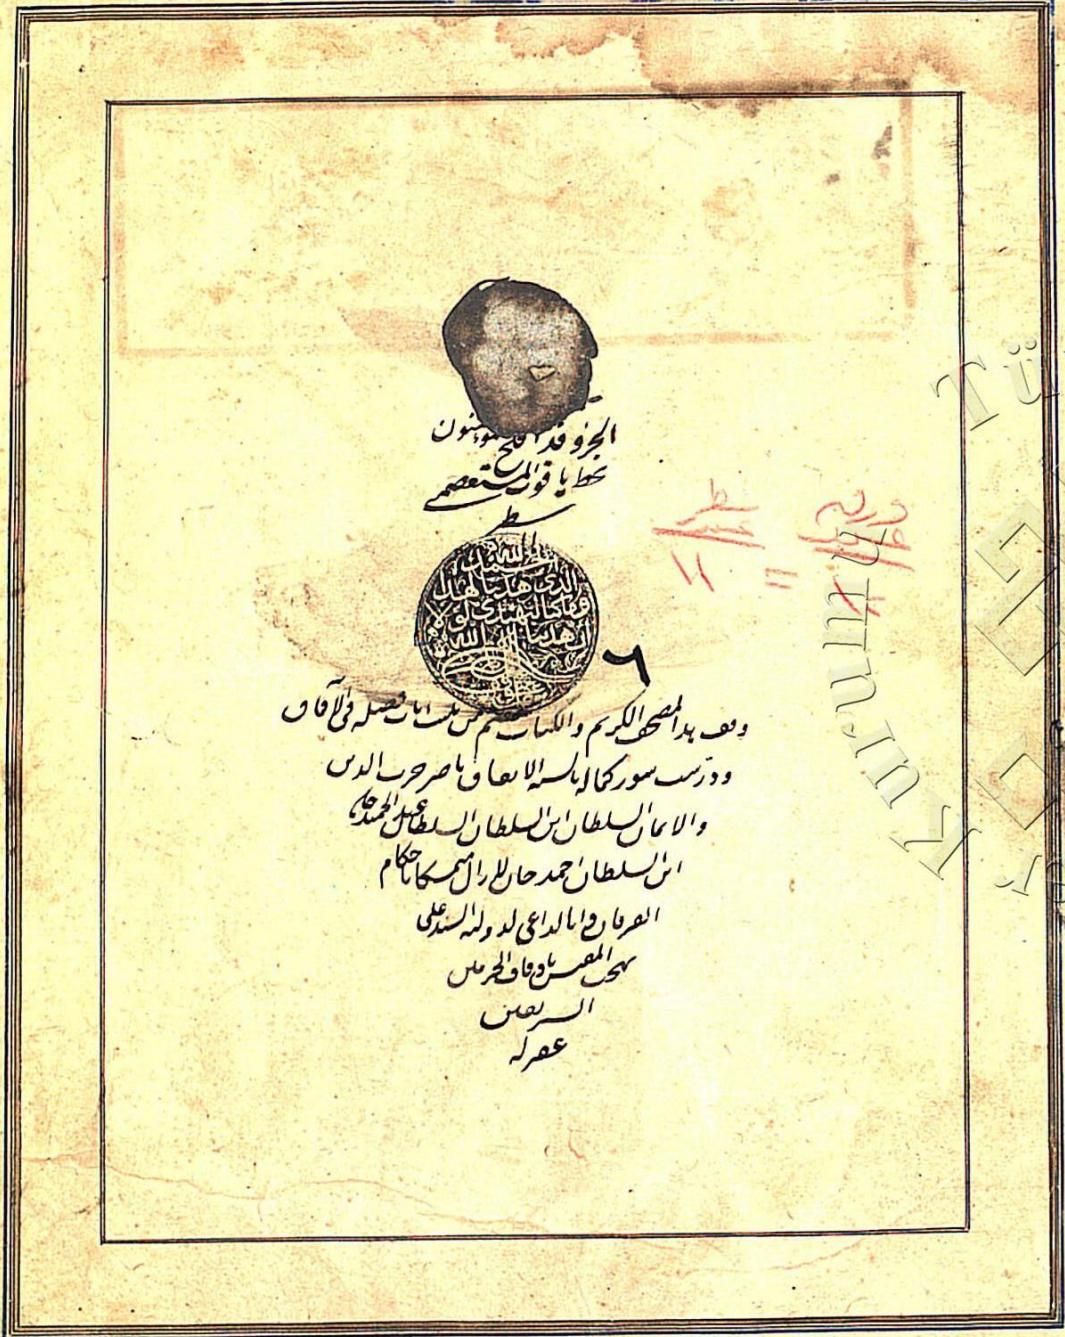 الجزو قد افلح المؤمنون
بخط ياقوت المستعصمي
سطر
الحمد لله
الذي هدينا لهذا
وما كنا لنهتدي لولا
ان هدينا الله
٦
وقف هذا المصحف الكريم والكتاب من تليت ايات فضله في الآفاق
ودرست سور كماله بالسنة الاتفاق ناصر حزب الدين
والايمان السلطان ابن السلطان السلطان عبد الحميد خان
ابن السلطان احمد خان لا زال متمسكا باحكام
الفرقان وانا الداعي لدولته السيد علي
بهجت المفتش باوقاف الحرمين
الشريفين
غفر له
سطر
١١
Kurumu